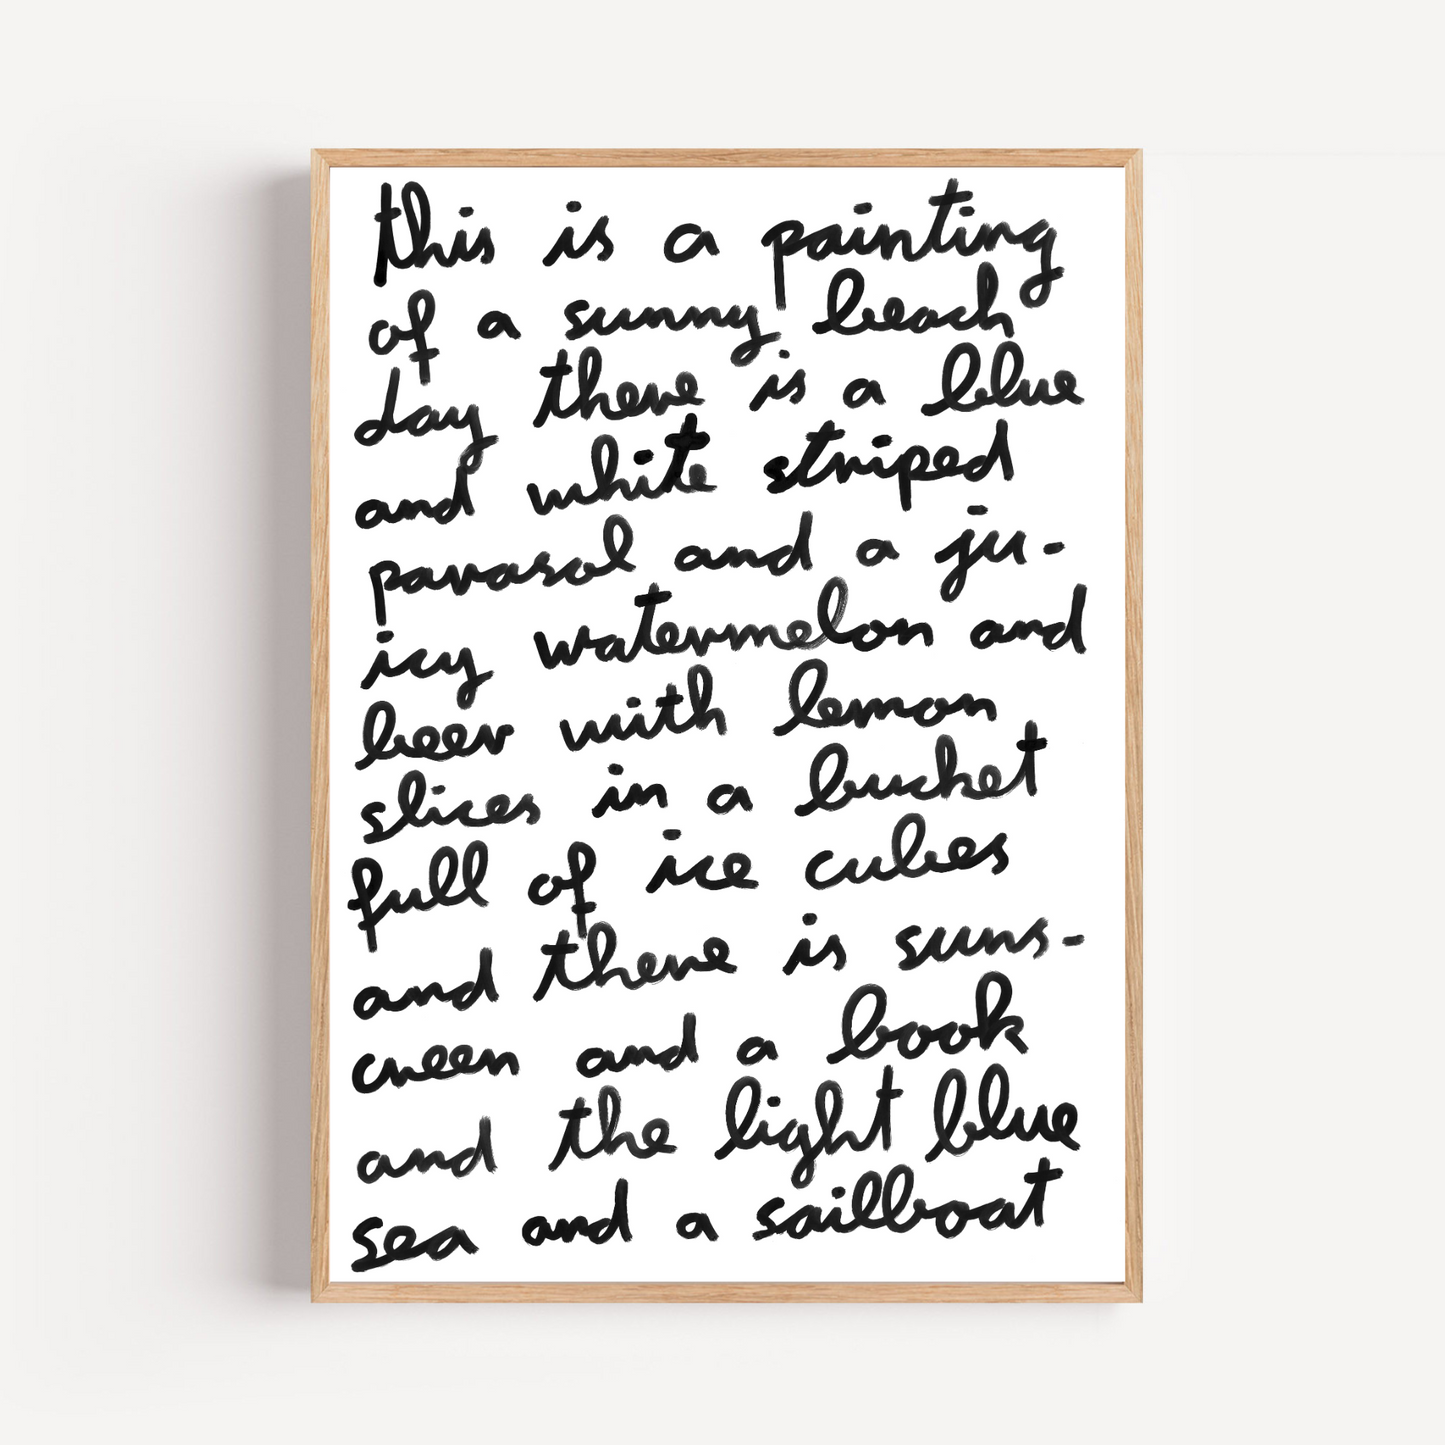 this is a painting
of a sunny beach
day there is a blue
and white striped
parasol and a ju-
icy watermelon and
beer with lemon
slices in a bucket
full of ice cubes
and there is suns-
creen and a book
and the light blue
sea and a sailboat